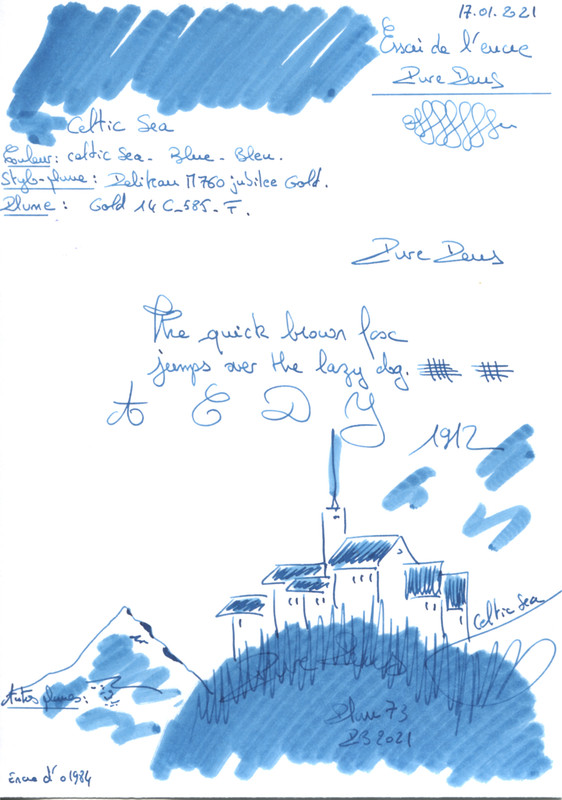 17.01.2021
Essai de l'encre
Pure Pens
Celtic Sea
Couleur: celtic Sea - Blue - Bleu.
Stylo-plume: Delikan M760 jubilee Gold.
Plume: Gold 14 C_585_F.
Pure Pens
The quick brown fox
jumps over the lazy dog.
A E D Y
1912
Celtic Sea
Pure Pens
Autres plumes:
Plume 73
2021
Encre d'